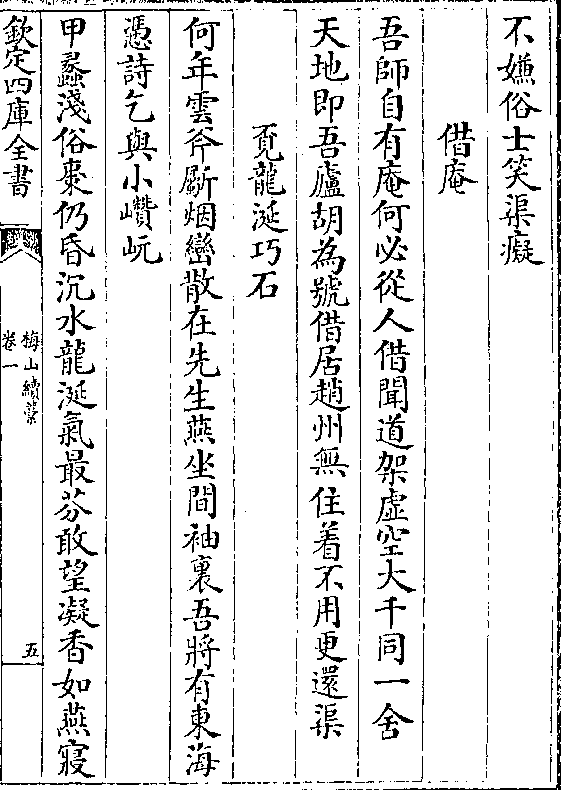 不嫌俗士笑渠癡
借庵
吾師自有庵何必從人借聞道架虛空大千同一舍
天地即吾廬胡為號借居趙州無住着不用更還渠
覔龍涎巧石
何年雲斧斸烟巒散在先生燕坐間袖裏吾將有東海
憑詩乞與小巑岏
甲蠡淺俗棗仍昏沉水龍涎氣最芬敢望凝香如燕寢
欽定四庫全書
梅山續藁
卷一
五